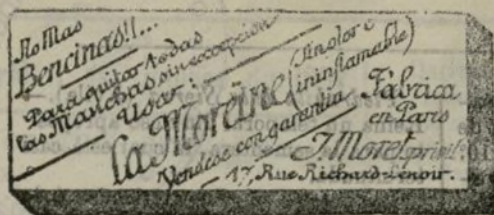 No Mas
Bencinas!!...
Para quitar todas
las Manchas sin excepción
Usar:
La Moreïne (Inolor e
ininflamable)
Vendese con garantia
Fábrica
en Paris
J. Moret
17, Rue Richard-Lenoir.